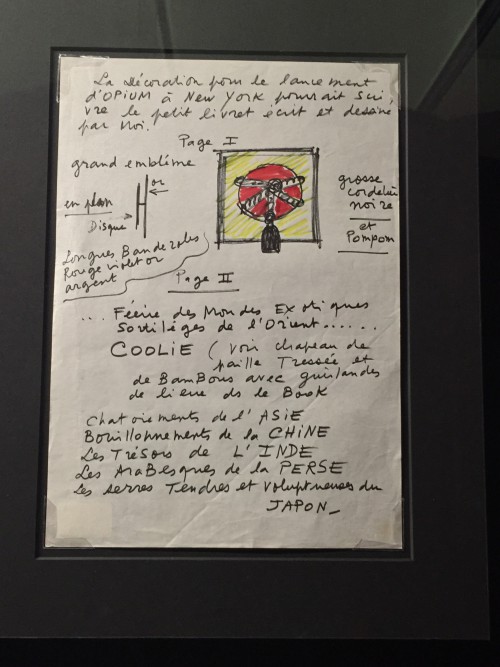 La Décoration pour le lancement
d'OPIUM à NEW YORK pourrait sui,
vre le petit livret écrit et dessiné
par moi.
Page I
grand emblème
or
en plan
Disque
grosse
cordelière
noire
et
Pompom
Longues Banderoles
Rouge violet or
argent
Page II
... Féérie des Mondes Exotiques
Sortilèges de l'Orient......
COOLIE (voir chapeau de
paille Tressée et
de BamBous avec guirlandes
de lierre ds le Book
Chatoiements de l'ASIE
Bouillonnements de la CHINE
Les Trésors de L'INDE
Les AraBesques de la PERSE
Les serres Tendres et Voluptueuses du
JAPON_